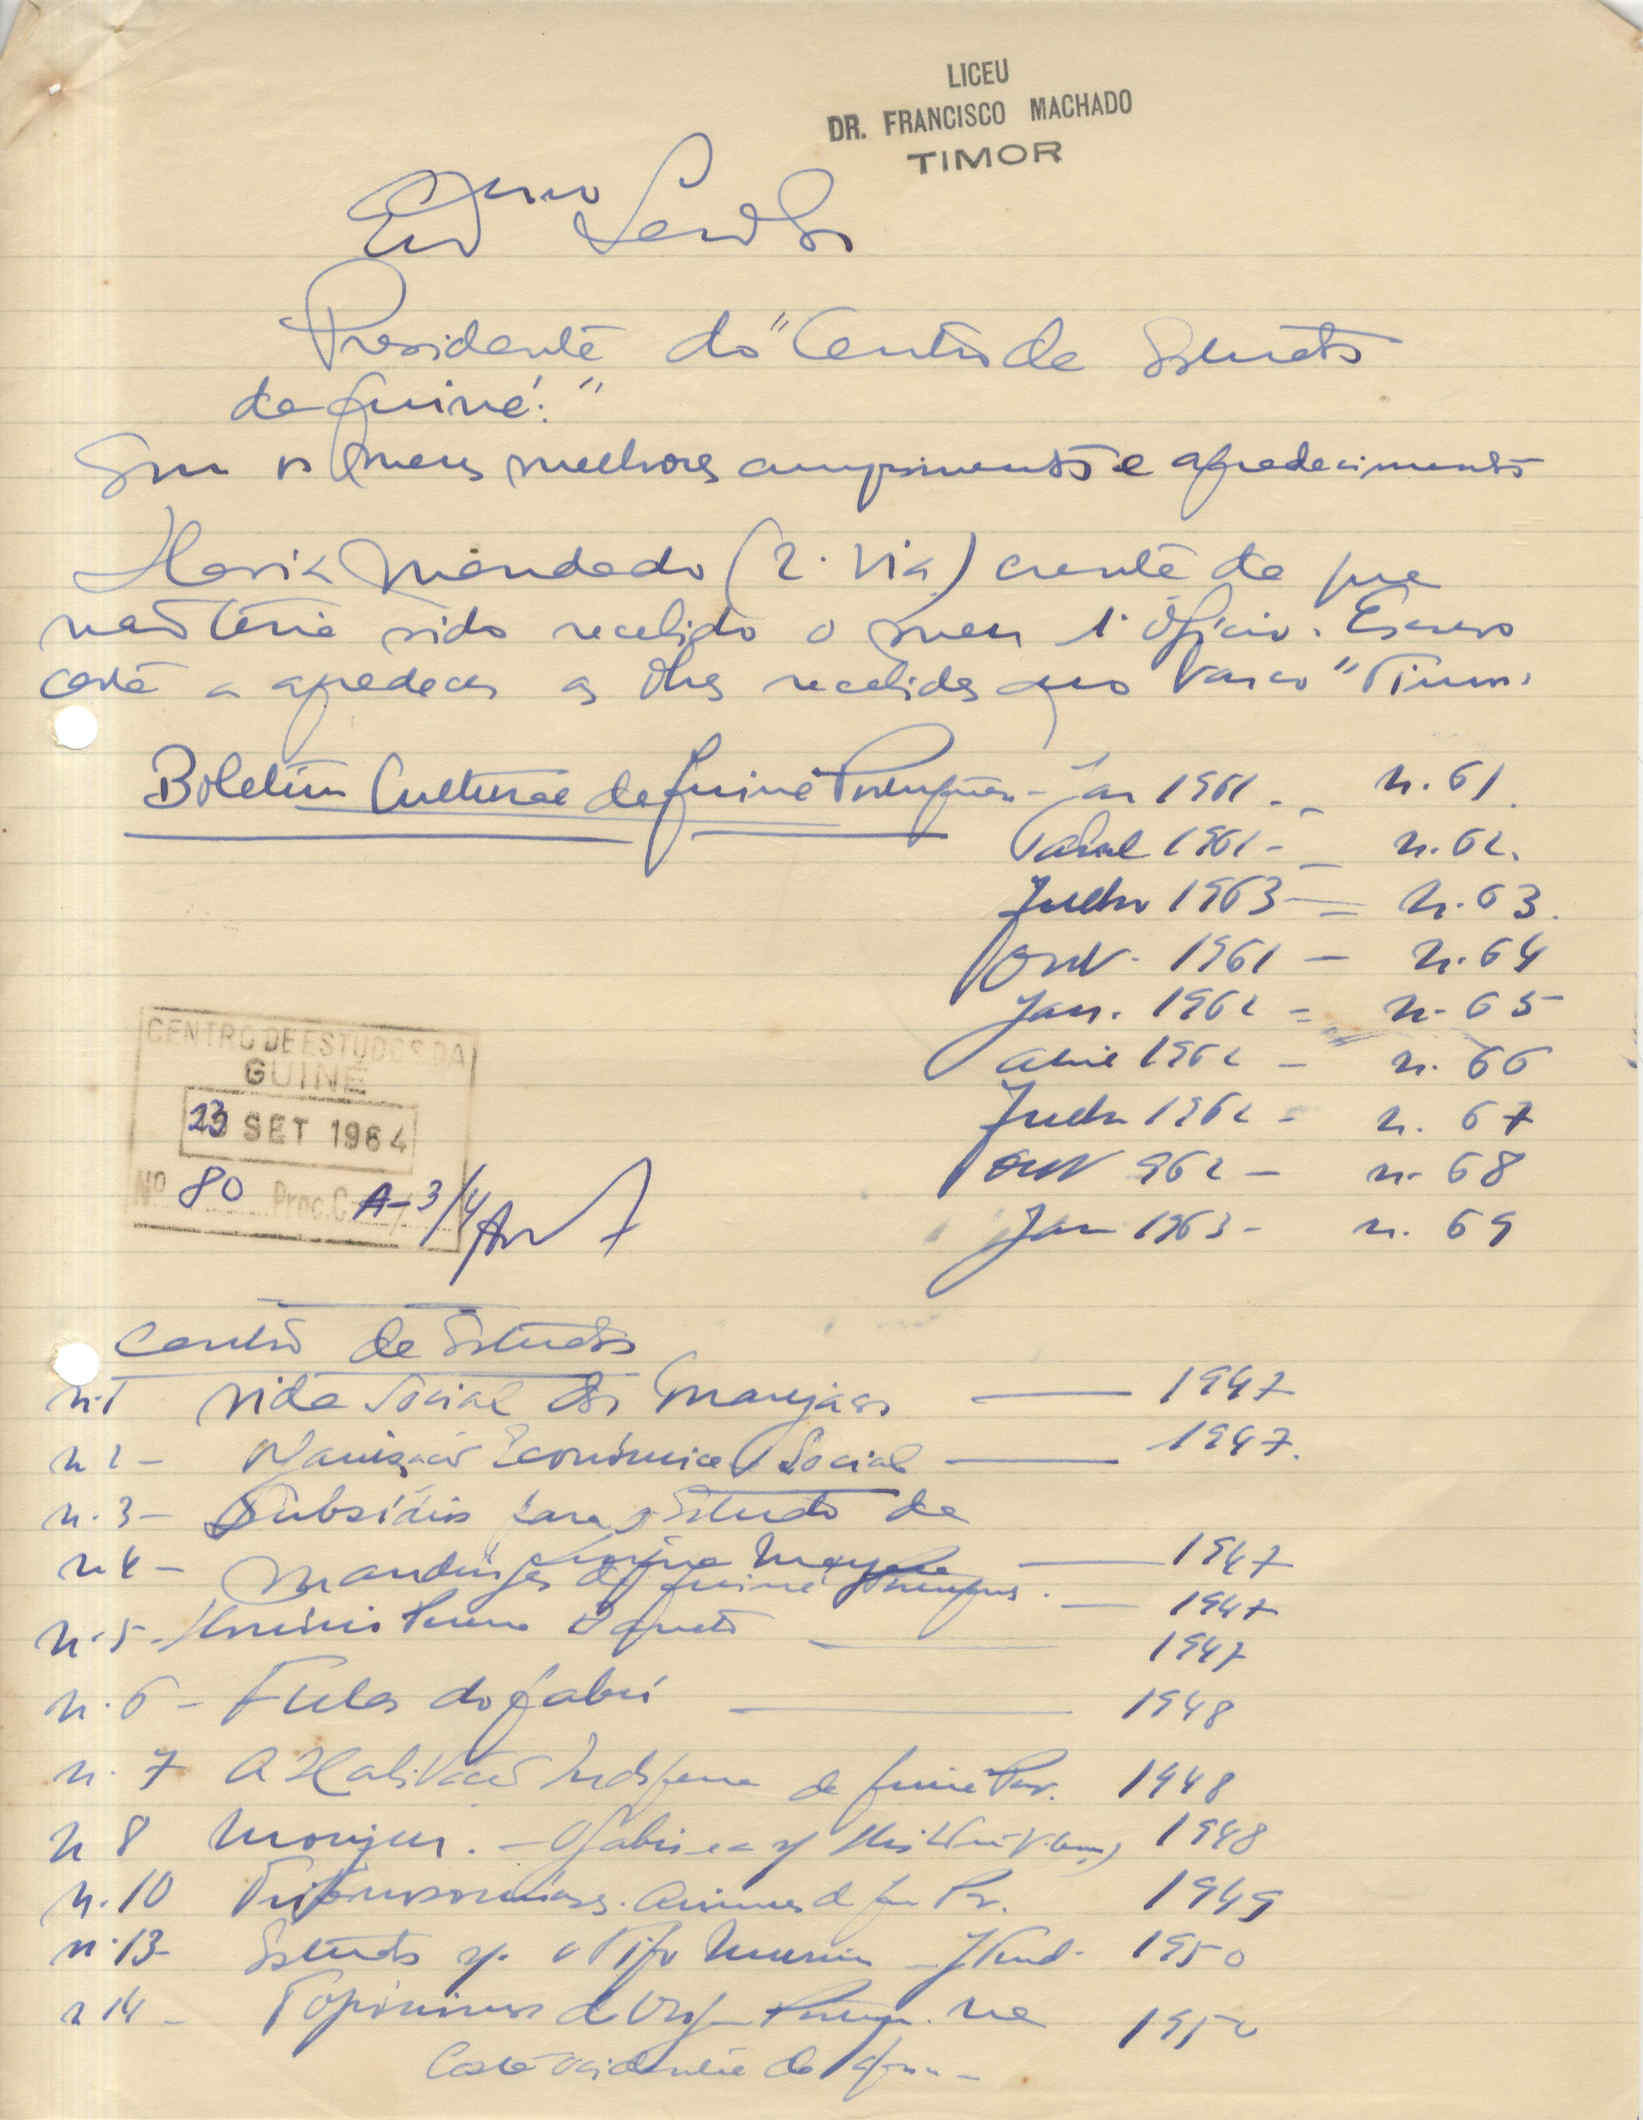 LICEU
DR. FRANCISCO MACHADO
TIMOR
Exmo Senhor
Presidente do "Centro de Estudos
da Guiné."
Com os meus melhores cumprimentos e agradecimentos
Havia mandado (2. via) crente de que
não teria sido recebido o meu 1º ofício. Escrevo
esta a agradecer as obras recebidas "Timor
Boletim Cultural da Guiné Portuguesa - Jan 1961 - n. 61.
Abril 1961 - n. 62.
Julho 1963 - n. 63.
Out. 1961 - n. 64
Jan. 1962 = n. 65
Abril 1962 - n. 66
Julho 1962 - n. 67
Out 962 - n. 68
Jan 1963 - n. 69
CENTRO DE ESTUDOS DA
GUINÉ
23 SET 1964
Nº 80 Proc. C. A-3/4
Centro de Estudos
n.1 Vida Social dos Manjacos — 1947
n 2 - Organização Económica Social — 1947.
n. 3 - Subsídios para o Estudo da
Língua — 1947
n 4 - Mandingas da Guiné Portuguesa. — 1947
n. 5 - Honório Pereira Barreto — 1947
n. 6 - Fulas do Gabú — 1948
n. 7 A Habitação Indígena da Guiné Por. 1948
n 8 1948
n. 10 Tripanosomiases. 1949
n. 13 - Estudos 1950
n 14 - Topónimos de Orig. Portug. na 1950
Costa Ocidental de